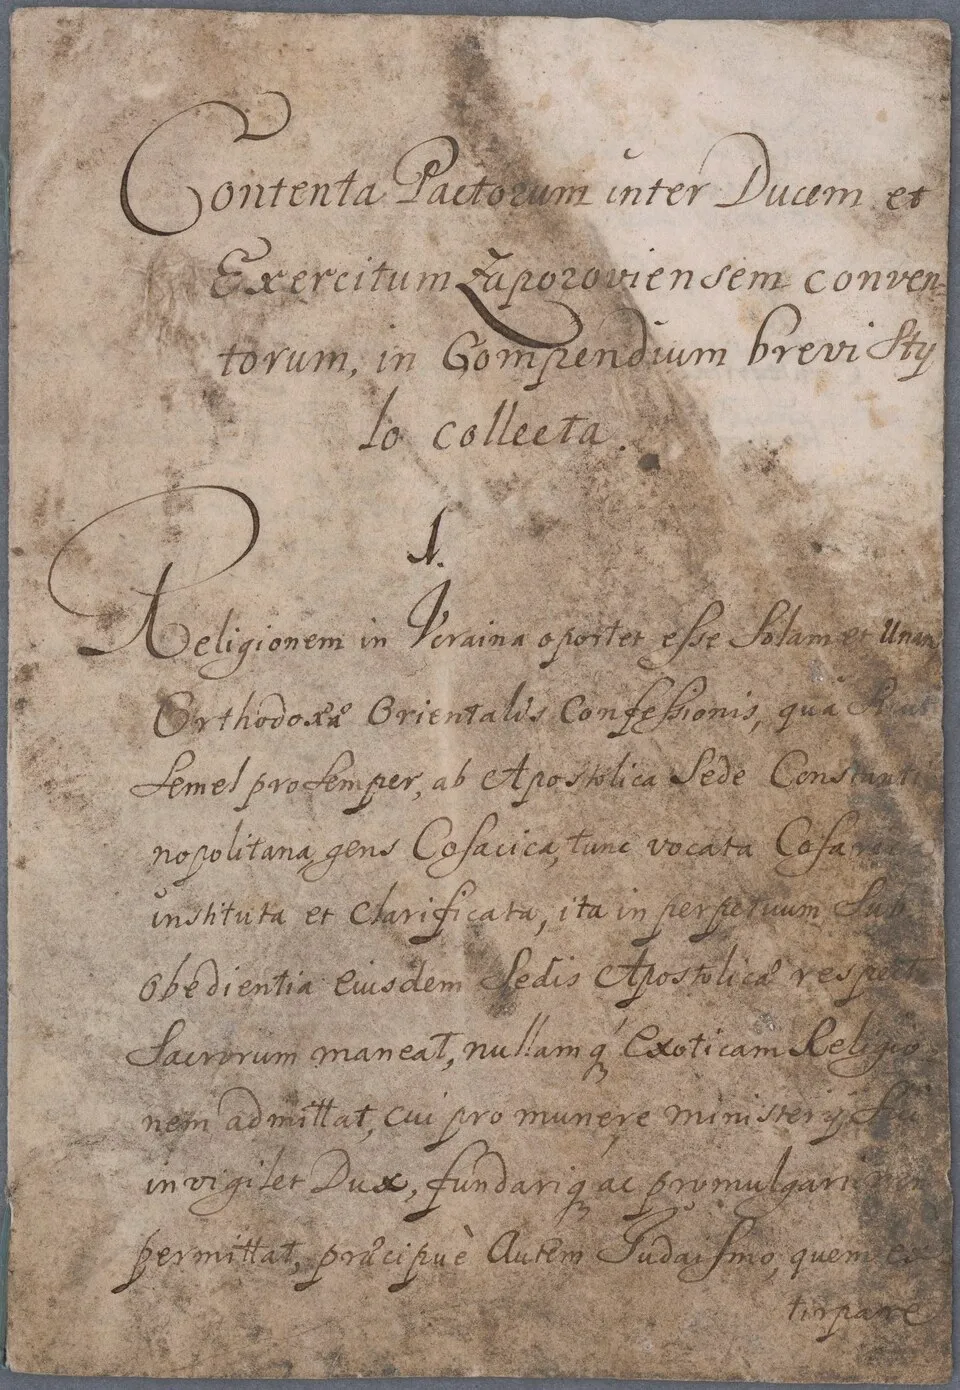 Contenta Pactorum inter Ducem et
Exercitum Zaporoviensem conven-
torum, in Compendium brevi Sty
lo collecta.
1.
Religionem in Vcraina oportet esse Solam et Unam,
Orthodoxæ Orientalis Confessionis, quâ
semel pro semper, ab Apostolica Sede Constanti
nopolitana, gens Cosacica, tunc vocata
instituta et clarificata, ita in perpetuum sub
obedientia eiusdem Sedis Apostolicæ respect
Sacrorum maneat, nullamq́ Exoticam Religio
nem admittat, cui pro munere ministerij sui
invigilet Dux, fundariq ac promulgari
permittat, præcipuè autem Judaismo, quem
tirpare